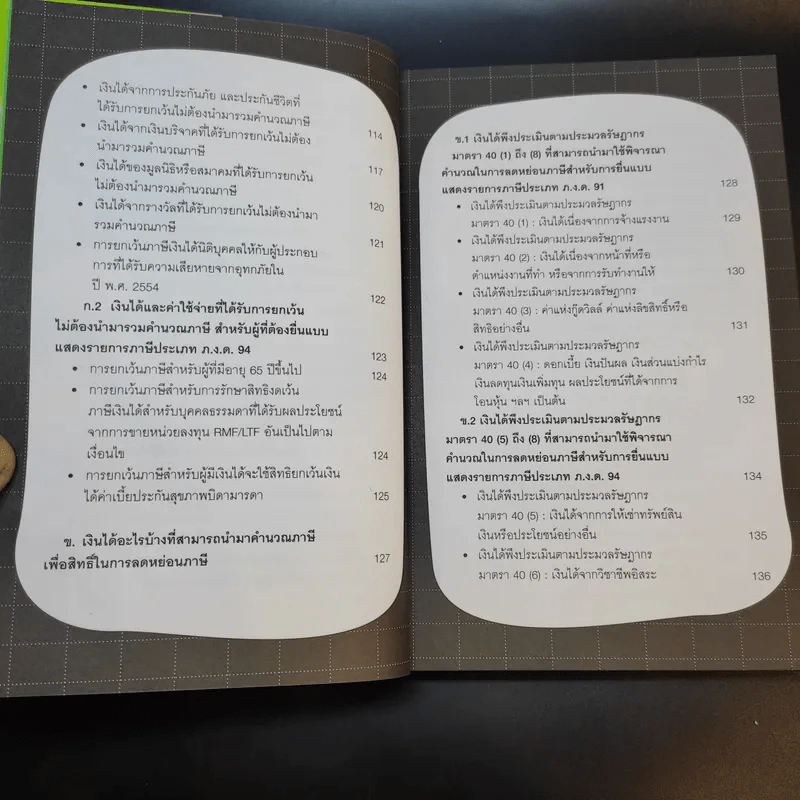 • เงินได้จากการประกันภัย และประกันชีวิตที่
ได้รับการยกเว้นไม่ต้องนำมารวมคำนวณภาษี 114
• เงินได้จากเงินบริจาคที่ได้รับการยกเว้นไม่ต้อง
นำมารวมคำนวณภาษี 117
• เงินได้ของมูลนิธิหรือสมาคมที่ได้รับการยกเว้น
ไม่ต้องนำมารวมคำนวณภาษี 120
• เงินได้จากรางวัลที่ได้รับการยกเว้นไม่ต้องนำมา
รวมคำนวณภาษี 121
• การยกเว้นภาษีเงินได้นิติบุคคลให้กับผู้ประกอบ
การที่ได้รับความเสียหายจากอุทกภัยใน
ปี พ.ศ. 2554 122
ก.2 เงินได้และค่าใช้จ่ายที่ได้รับการยกเว้น
ไม่ต้องนำมารวมคำนวณภาษี สำหรับผู้ที่ต้องยื่นแบบ
แสดงรายการภาษีประเภท ภ.ง.ด. 94 123
• การยกเว้นภาษีสำหรับผู้ที่มีอายุ 65 ปีขึ้นไป 124
• การยกเว้นภาษีสำหรับการรักษาสิทธิงดเว้น
ภาษีเงินได้สำหรับบุคคลธรรมดาที่ได้รับผลประโยชน์
จากการขายหน่วยลงทุน RMF/LTF อันเป็นไปตาม
เงื่อนไข 124
• การยกเว้นภาษีสำหรับผู้มีเงินได้จะใช้สิทธิยกเว้นเงิน
ได้ค่าเบี้ยประกันสุขภาพบิดามารดา 125
ข. เงินได้อะไรบ้างที่สามารถนำมาคำนวณภาษี
เพื่อสิทธิ์ในการลดหย่อนภาษี 127
ข.1 เงินได้พึงประเมินตามประมวลรัษฎากร
มาตรา 40 (1) ถึง (8) ที่สามารถนำมาใช้พิจารณา
คำนวณในการลดหย่อนภาษีสำหรับการยื่นแบบ
แสดงรายการภาษีประเภท ภ.ง.ด. 91 128
• เงินได้พึงประเมินตามประมวลรัษฎากร
มาตรา 40 (1) : เงินได้เนื่องจากการจ้างแรงงาน 129
• เงินได้พึงประเมินตามประมวลรัษฎากร
มาตรา 40 (2) : เงินได้เนื่องจากหน้าที่หรือ
ตำแหน่งงานที่ทำ หรือจากการรับทำงานให้ 130
• เงินได้พึงประเมินตามประมวลรัษฎากร
มาตรา 40 (3) : ค่าแห่งกู๊ดวิลล์ ค่าแห่งลิขสิทธิ์หรือ
สิทธิอย่างอื่น 131
• เงินได้พึงประเมินตามประมวลรัษฎากร
มาตรา 40 (4) : ดอกเบี้ย เงินปันผล เงินส่วนแบ่งกำไร
เงินลดทุนเงินเพิ่มทุน ผลประโยชน์ที่ได้จากการ
โอนหุ้น ฯลฯ เป็นต้น 132
ข.2 เงินได้พึงประเมินตามประมวลรัษฎากร
มาตรา 40 (5) ถึง (8) ที่สามารถนำมาใช้พิจารณา
คำนวณในการลดหย่อนภาษีสำหรับการยื่นแบบ
แสดงรายการภาษีประเภท ภ.ง.ด. 94 134
• เงินได้พึงประเมินตามประมวลรัษฎากร
มาตรา 40 (5) : เงินได้จากการให้เช่าทรัพย์สิน
เงินหรือประโยชน์อย่างอื่น 135
• เงินได้พึงประเมินตามประมวลรัษฎากร
มาตรา 40 (6) : เงินได้จากวิชาชีพอิสระ 136